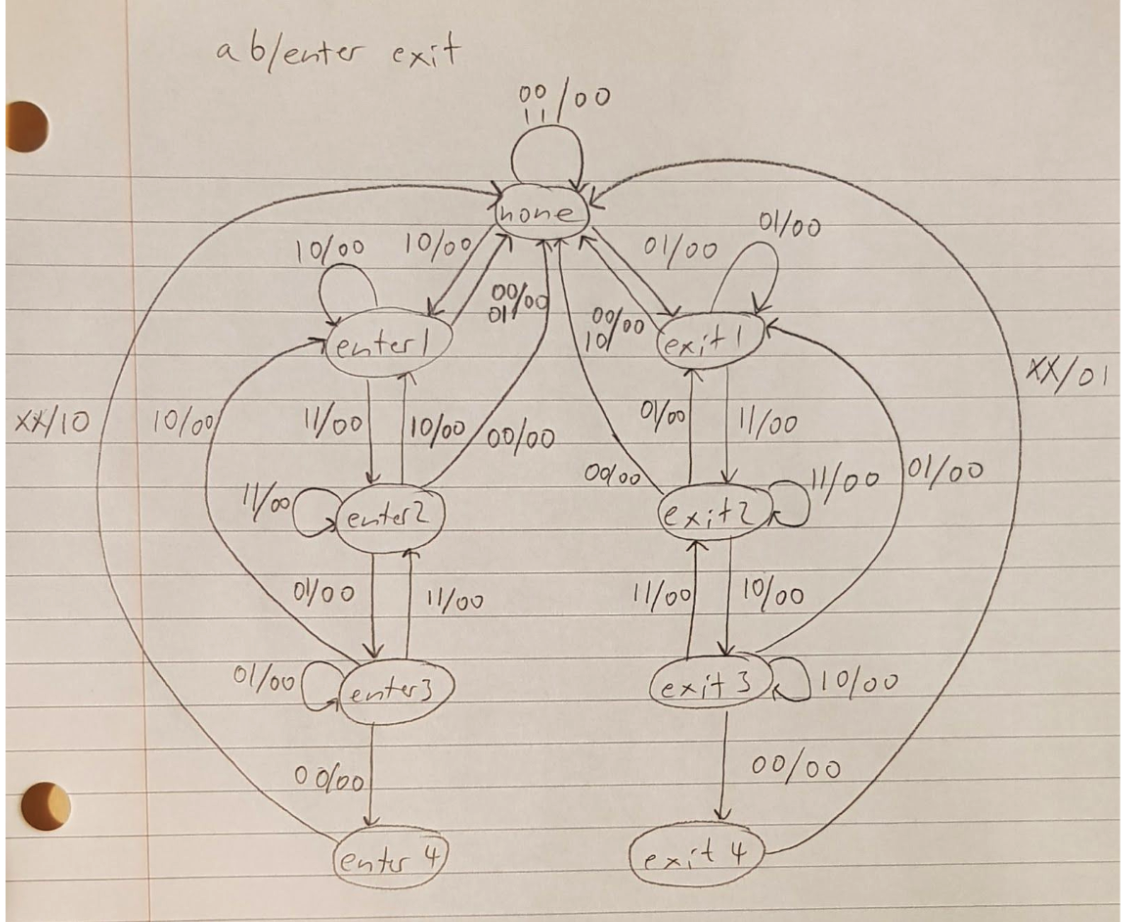 ab/enter exit
00/00
11
none
10/00
10/00
01/00
01/00
00/00
01
00/00
10
enter1
exit1
XX/10
10/00
11/00
10/00
00/00
01/00
11/00
XX/01
00/00
01/00
11/00
11/00
enter2
exit2
01/00
11/00
11/00
10/00
01/00
enter3
exit3
10/00
00/00
00/00
enter 4
exit 4